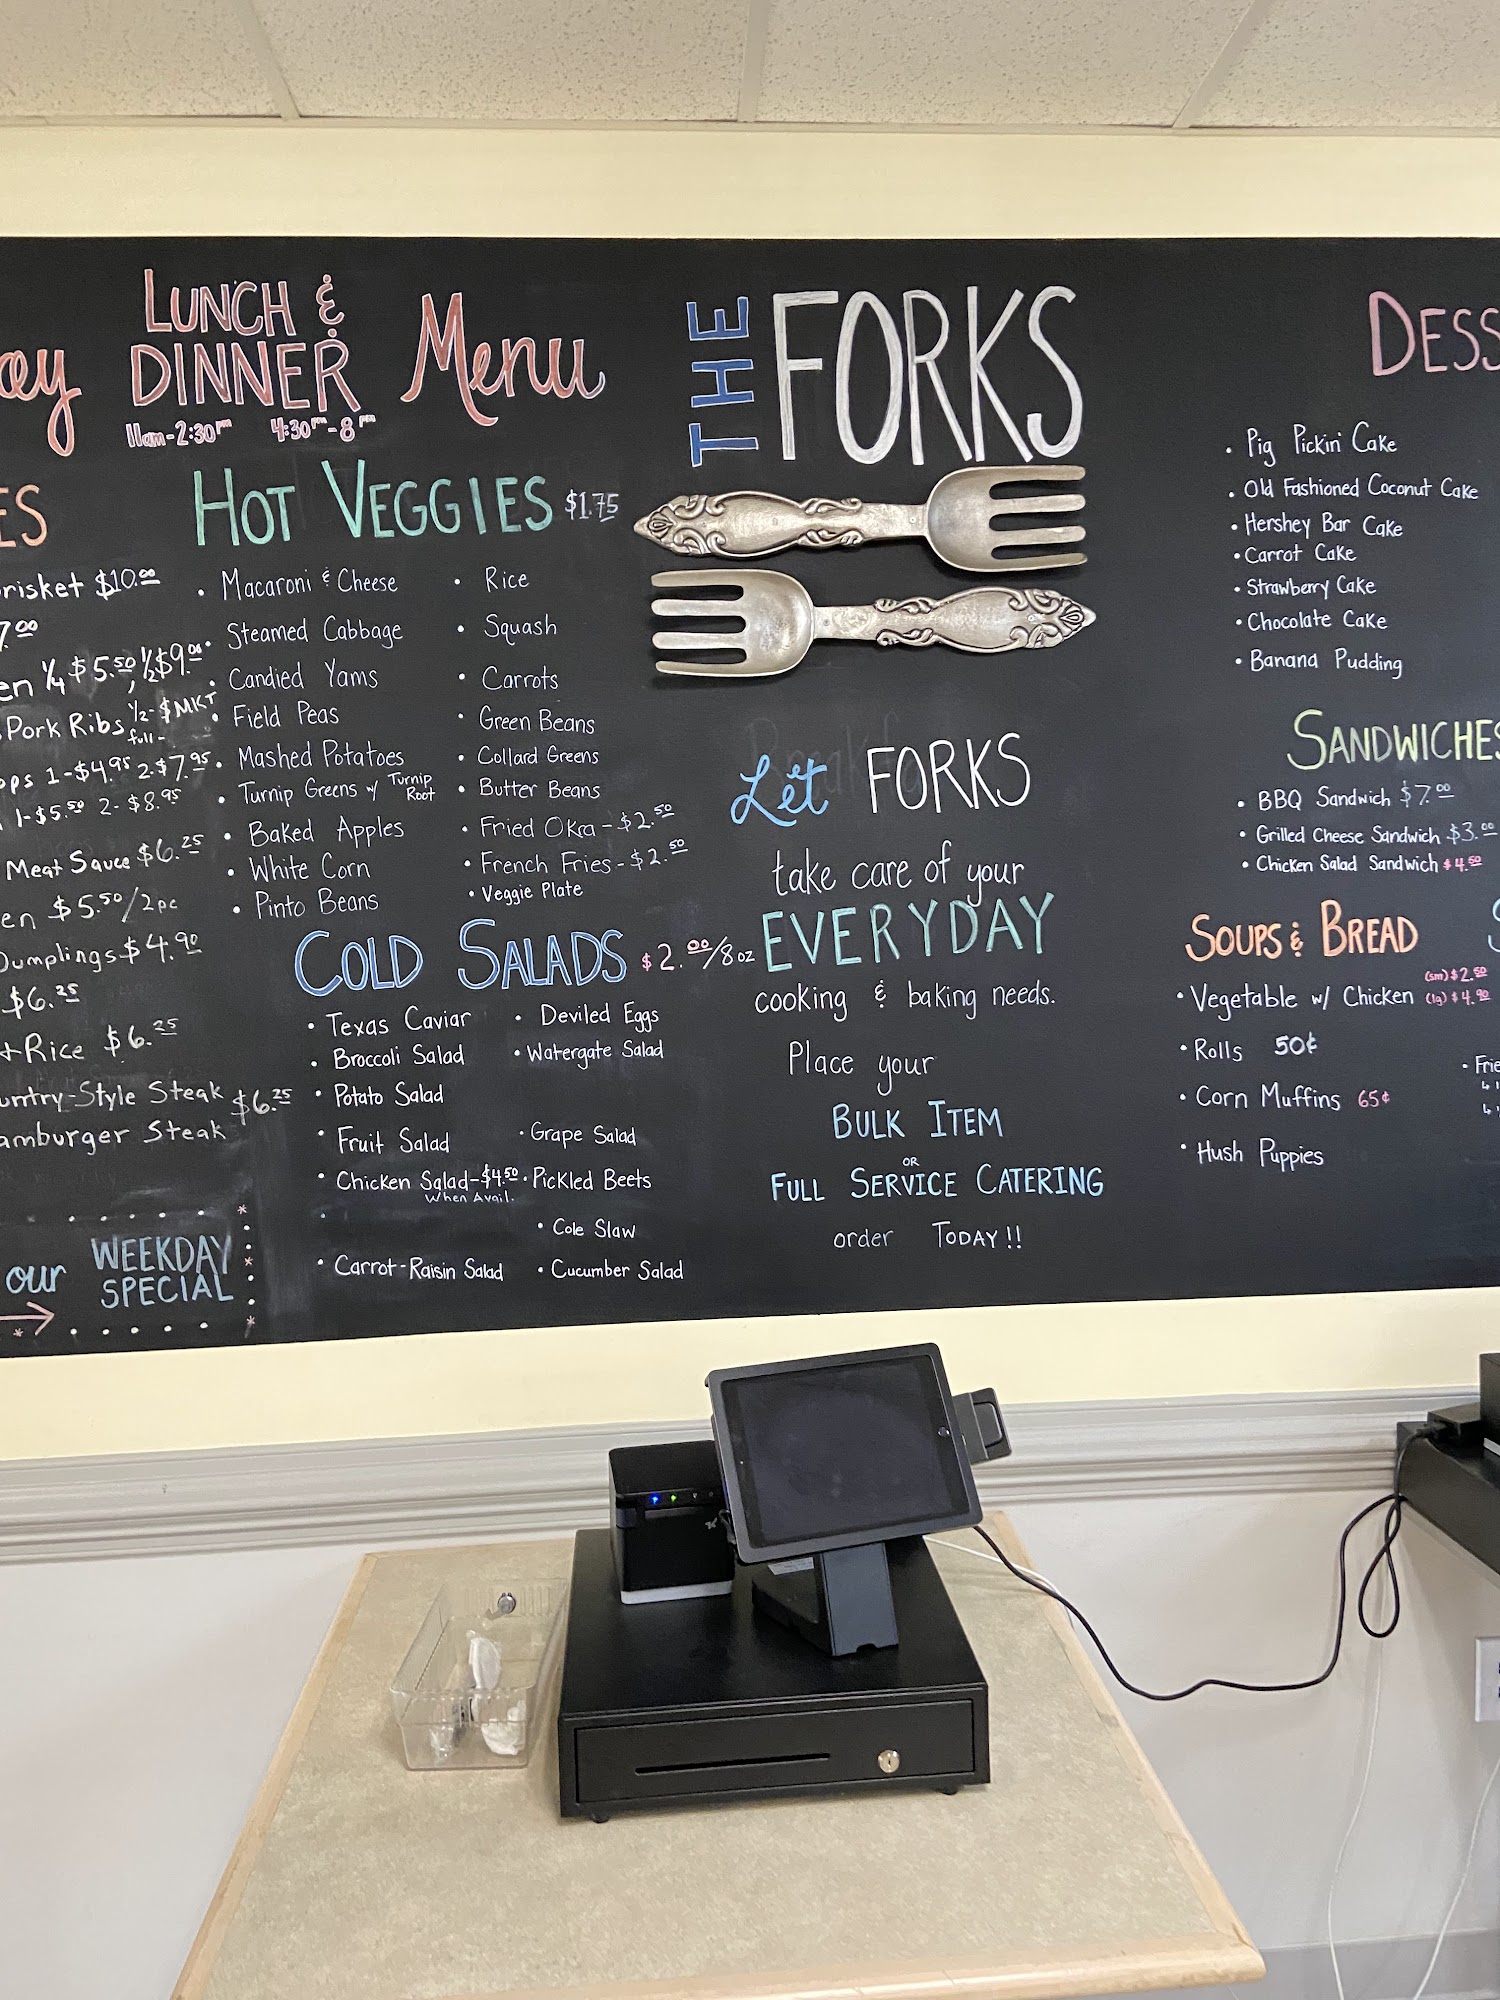 LUNCH &
DINNER Menu
11am-2:30pm 4:30pm-8pm
$10.00
7.00
1/4 $5.50, 1/2 $9.00
Pork Ribs 1/2- $MKT
full-
1-$4.95 2-$7.95
1-$5.50 2-$8.95
Meat Sauce $6.25
$5.50/2pc
Dumplings $4.90
$6.25
Rice $6.25
Style Steak $6.25
Steak
our WEEKDAY
SPECIAL
HOT VEGGIES $1.75
• Macaroni & Cheese
• Steamed Cabbage
• Candied Yams
• Field Peas
• Mashed Potatoes
• Turnip Greens w/ Turnip Root
• Baked Apples
• White Corn
• Pinto Beans
• Rice
• Squash
• Carrots
• Green Beans
• Collard Greens
• Butter Beans
• Fried Okra - $2.50
• French Fries - $2.50
• Veggie Plate
COLD SALADS $2.00/8oz
• Texas Caviar
• Broccoli Salad
• Potato Salad
• Fruit Salad
• Chicken Salad - $4.50
When Avail.
• Carrot-Raisin Salad
• Deviled Eggs
• Watergate Salad
• Grape Salad
• Pickled Beets
• Cole Slaw
• Cucumber Salad
THE FORKS
Let FORKS
take care of your
EVERYDAY
cooking & baking needs.
Place your
BULK ITEM
OR
FULL SERVICE CATERING
order TODAY!!
• Pig Pickin' Cake
• Old Fashioned Coconut Cake
• Hershey Bar Cake
• Carrot Cake
• Strawberry Cake
• Chocolate Cake
• Banana Pudding
SANDWICHES
• BBQ Sandwich $7.00
• Grilled Cheese Sandwich $3.00
• Chicken Salad Sandwich $4.50
SOUPS & BREAD
• Vegetable w/ Chicken (sm) $2.50
(lg) $4.90
• Rolls 50¢
• Corn Muffins 65¢
• Hush Puppies